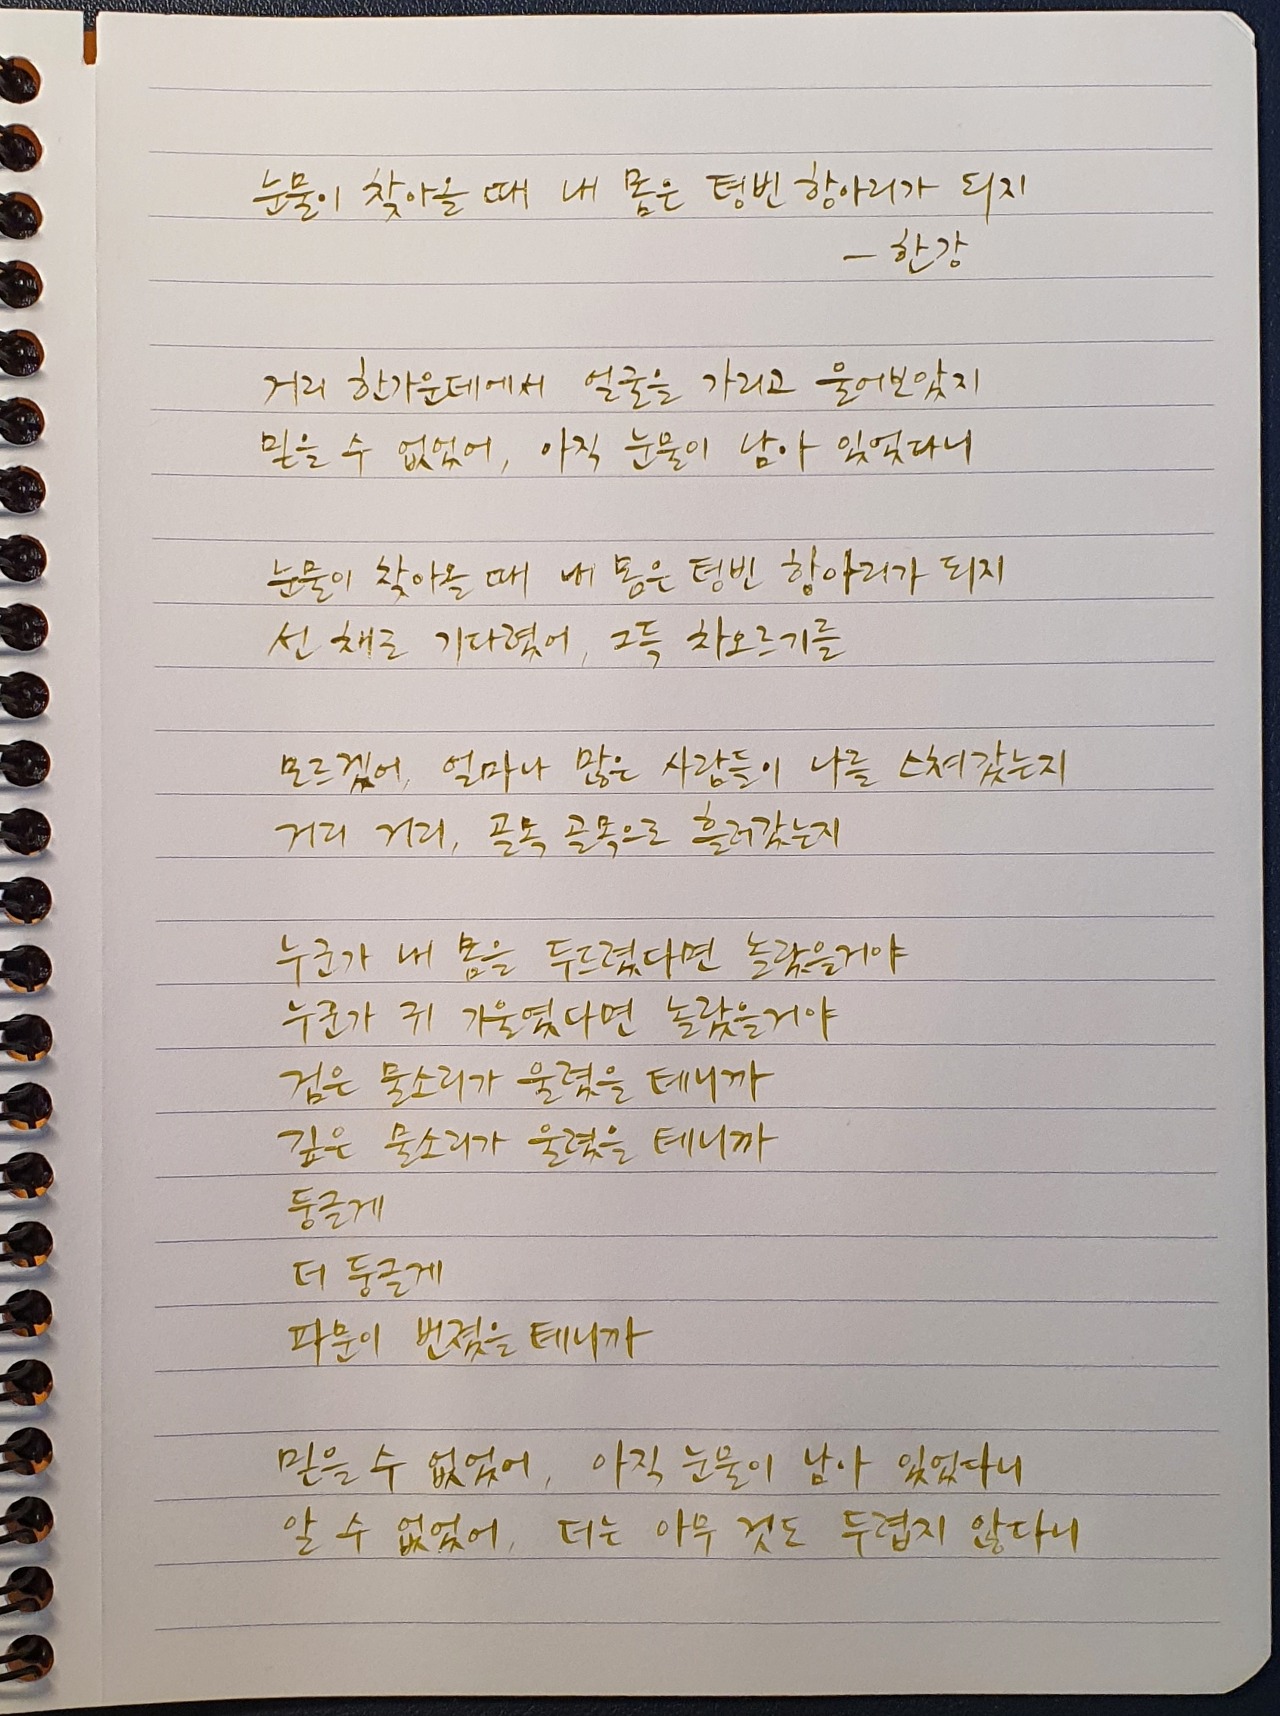 눈물이 찾아올 때 내 몸은 텅빈 항아리가 되지
- 한강
거리 한가운데에서 얼굴을 가리고 울어보았지
믿을 수 없었어, 아직 눈물이 남아 있었다니
눈물이 찾아올 때 내 몸은 텅빈 항아리가 되지
선 채로 기다렸어, 그득 차오르기를
모르겠어, 얼마나 많은 사람들이 나를 스쳐갔는지
거리 거리, 골목 골목으로 흘러갔는지
누군가 내 몸을 두드렸다면 놀랐을거야
누군가 귀 기울였다면 놀랐을거야
검은 물소리가 울렸을 테니까
깊은 물소리가 울렸을 테니까
둥글게
더 둥글게
파문이 번졌을 테니까
믿을 수 없었어, 아직 눈물이 남아 있었다니
알 수 없었어, 더는 아무 것도 두렵지 않다니